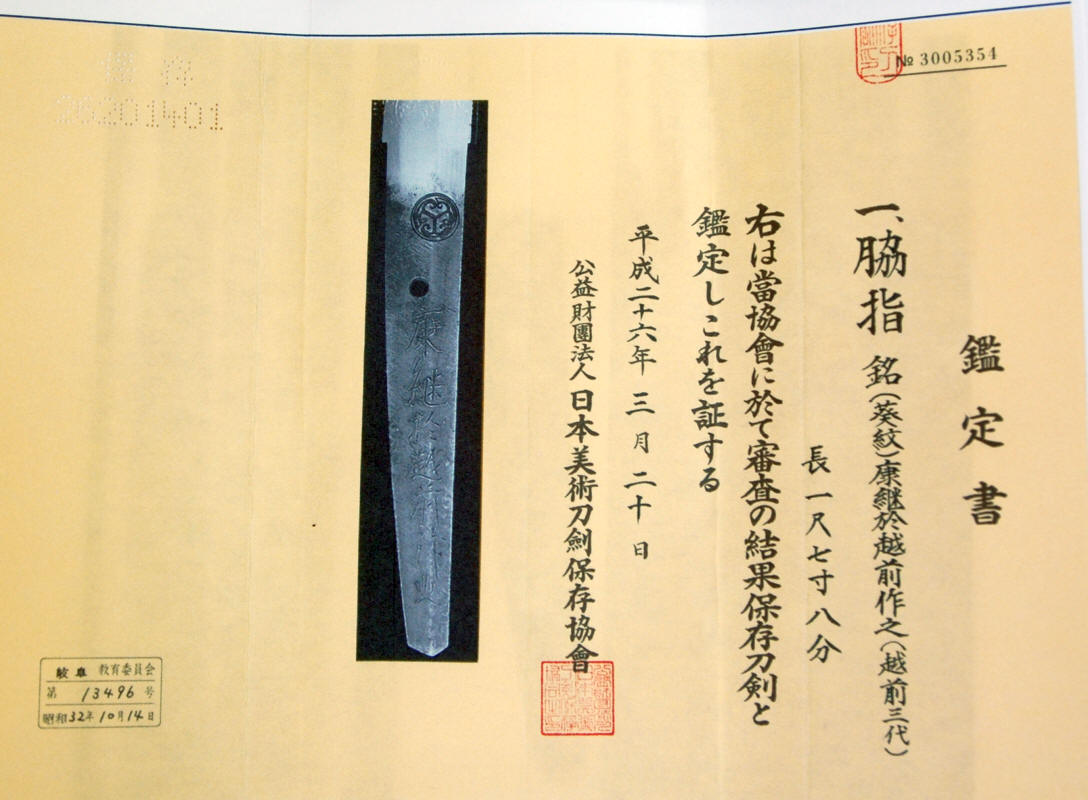 № 3005354
鑑定書
一、脇指 銘(葵紋)康継於越前作之(越前三代)
長一尺七寸八分
右は當協會に於て審査の結果保存刀剣と
鑑定しこれを証する
平成二十六年三月二十日
公益財團法人日本美術刀劍保存協會
康継於越前作之
保存
26201401
岐阜 教育委員会
第 13496 号
昭和32年10月14日